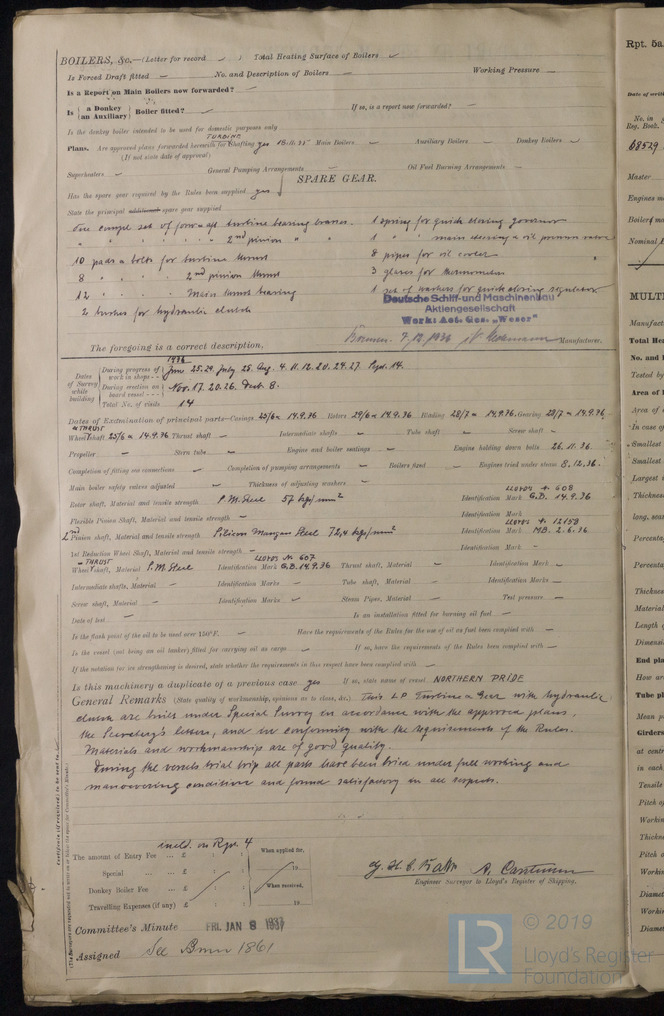 BOILERS, &c.—(Letter for record ✓ ) Total Heating Surface of Boilers ✓
Is Forced Draft fitted — No. and Description of Boilers — Working Pressure —
Is a Report on Main Boilers now forwarded? —
Is { a Donkey / an Auxiliary } Boiler fitted? ✓ If so, is a report now forwarded? ✓
Is the donkey boiler intended to be used for domestic purposes only
TURBINE
Plans. Are approved plans forwarded herewith for Shafting yes Main Boilers — Auxiliary Boilers — Donkey Boilers ✓
(If not state date of approval)
Superheaters ✓ General Pumping Arrangements — Oil Fuel Burning Arrangements —
SPARE GEAR.
Has the spare gear required by the Rules been supplied yes
State the principal additional spare gear supplied
One compl set of for & aft turbine bearing brasses. 1 spring for quick closing governor
" " " " " 2nd pinion " " 1 " " main steering & oil pressure
10 pads & bolts for turbine thrust 8 pipes for oil cooler
8 " " " 2nd pinion thrust 3 glasses for thermometers
12 " " " Main thrust bearing 1 set of washers for quick closing regulator
2 bushes for hydraulic clutch
Deutsche Schiff- und Maschinenbau
Aktiengesellschaft
Werk: Act. Ges. „Weser"
The foregoing is a correct description, Bremen. 7.12.1936 Manufacturer.
1936
Dates of Survey while building
During progress of work in shops - - June 25.29. July 25. Aug. 4. 11. 12. 20. 24. 27. Sept. 14.
During erection on board vessel - - - Nov. 17. 20. 26. Decb. 8.
Total No. of visits 14
Dates of Examination of principal parts—Casings 25/6 & 14.9.36 Rotors 29/6 & 14.9.36 Blading 28/7 & 14.9.36. Gearing 28/7 & 14.9.36.
& THRUST
Wheel shaft 25/6 & 14.9.36 Thrust shaft — Intermediate shafts — Tube shaft — Screw shaft —
Propeller — Stern tube — Engine and boiler seatings — Engine holding down bolts 26.11.36.
Completion of fitting sea connections ✓ Completion of pumping arrangements — Boilers fixed — Engines tried under steam 8.12.36.
Main boiler safety valves adjusted — Thickness of adjusting washers —
LLOYDS No. 608
Rotor shaft, Material and tensile strength S.M. Steel 57 kgs/mm² Identification Mark G.B. 14.9.36
Flexible Pinion Shaft, Material and tensile strength — LLOYDS No. 12159
Identification Mark
2nd Pinion shaft, Material and tensile strength Silicium Mangan Steel 72,4 kgs/mm² Identification Mark MB. 2.6.36
1st Reduction Wheel Shaft, Material and tensile strength — Identification Mark —
& THRUST LLOYDS No 607
Wheel shaft, Material S.M. Steel Identification Mark G.B. 14.9.36 Thrust shaft, Material — Identification Mark —
Intermediate shafts, Material — Identification Marks — Tube shaft, Material — Identification Marks —
Screw shaft, Material — Identification Marks ✓ Steam Pipes, Material — Test pressure —
Date of test — Is an installation fitted for burning oil fuel —
Is the flash point of the oil to be used over 150°F. — Have the requirements of the Rules for the use of oil as fuel been complied with —
Is the vessel (not being an oil tanker) fitted for carrying oil as cargo — If so, have the requirements of the Rules been complied with —
If the notation for ice strengthening is desired, state whether the requirements in this respect have been complied with —
Is this machinery a duplicate of a previous case yes If so, state name of vessel NORTHERN PRIDE
General Remarks (State quality of workmanship, opinions as to class, &c.) This L.P Turbine & Gear with hydraulic
clutch are built under Special Survey in accordance with the approved plans,
the Secretary's letters, and in conformity with the requirements of the Rules.
Materials and workmanship are of good quality.
During the vessels trial trip all parts have been tried under full working and
manoeuvring condition and found satisfactory in all respects.
incld. on Rpt. 4
The amount of Entry Fee ... £ : : When applied for,
Special ... ... £ : : 19
Donkey Boiler Fee ... £ : : When received,
Travelling Expenses (if any) £ : : 19
Engineer Surveyor to Lloyd's Register of Shipping.
Committee's Minute FRI. JAN 8 1937
Assigned See Bmn 1861
Rpt. 5a
Date of writ
No. in
Reg. Book.
68529
Master
Engines m
Boilers m
Nominal
MULTI
Manufact
Total Hea
No. and
Tested by
Area of
Area of
In case of
Smallest
Smallest
Largest
Thickness
long. seam
Percenta
Percenta
Thickness
Material
Length
Dimens
End pla
How are
Tube pl
Mean p
Girders
at centr
in each
Tensile
Pitch of
Working
Thickne
Pitch o
Workin
Diamet
Workin
Diamet
LR
© 2019
Lloyd's Register
Foundation